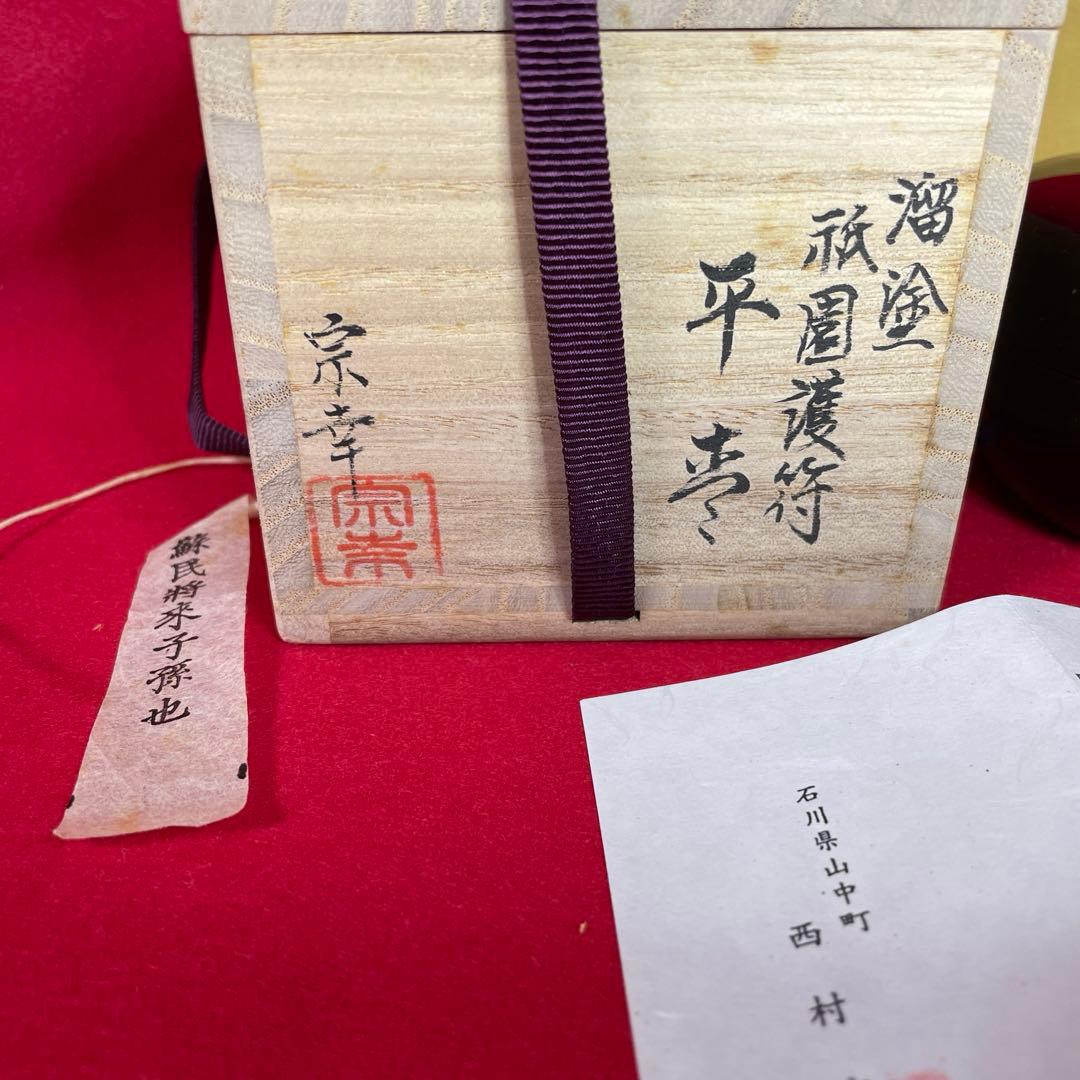 溜塗
祇園護符
平棗
宗幸
宗幸
蘇民将来子孫也
石川県山中町
西村